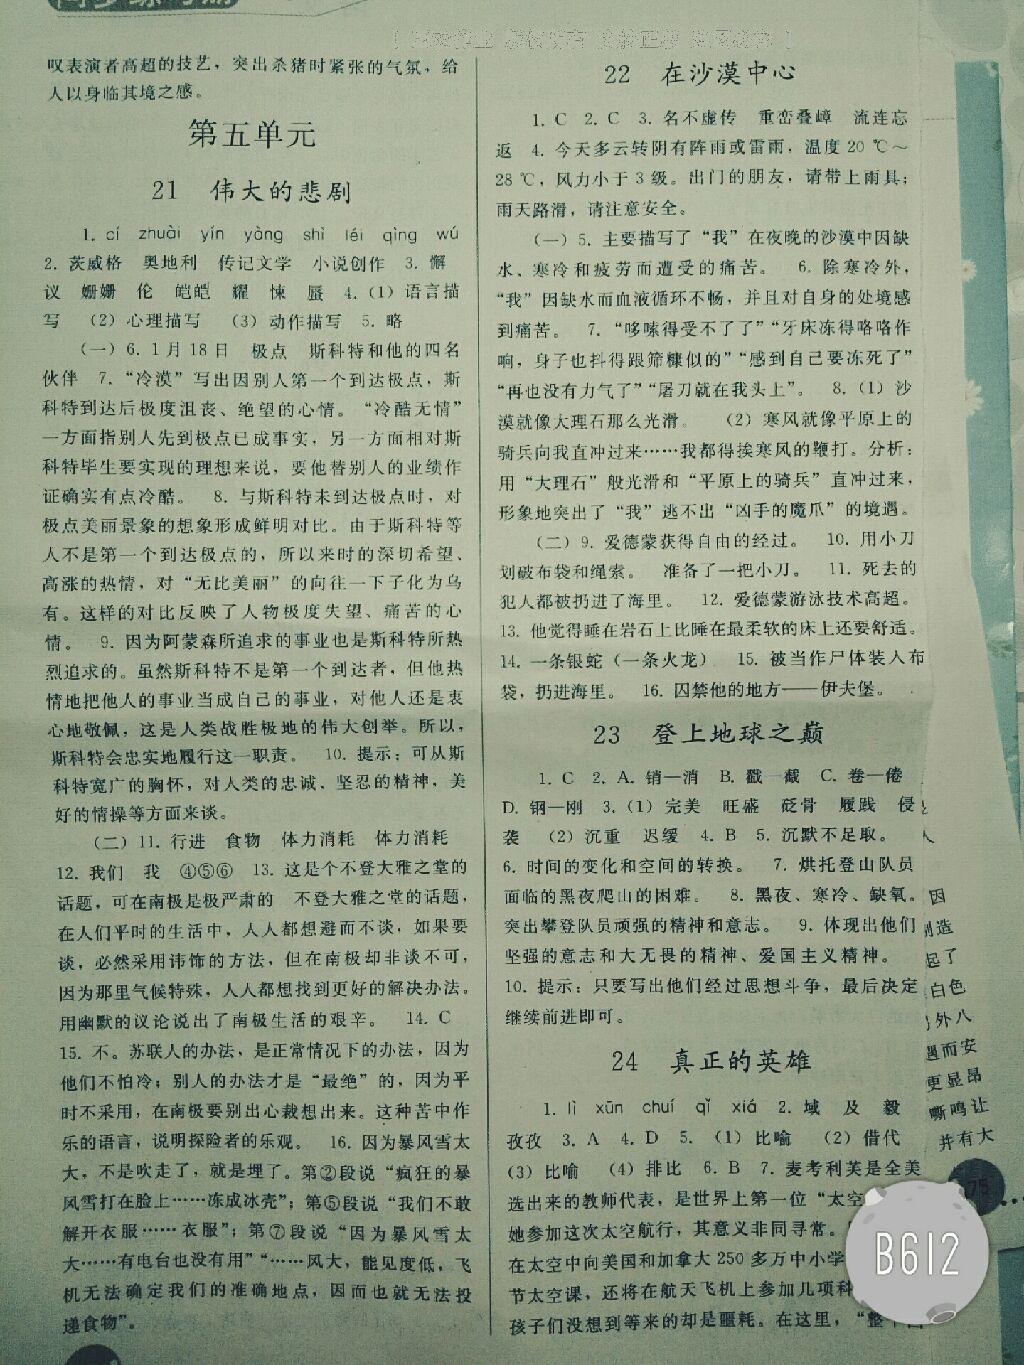 叹表演者高超的技艺，突出杀猪时紧张的气氛，给
人以身临其境之感。
第五单元
21 伟大的悲剧
1. cí zhuài yín yàng shì léi qìng wú
2. 茨威格 奥地利 传记文学 小说创作 3. 懈
议 姗姗 伦 皑皑 耀 悚 蜃 4. (1) 语言描
写 (2) 心理描写 (3) 动作描写 5. 略
(一) 6. 1月18日 极点 斯科特和他的四名
伙伴 7. “冷漠”写出因别人第一个到达极点，斯
科特到达后极度沮丧、绝望的心情。“冷酷无情”
一方面指别人先到极点已成事实，另一方面相对斯
科特毕生要实现的理想来说，要他替别人的业绩作
证确实有点冷酷。 8. 与斯科特未到达极点时，对
极点美丽景象的想象形成鲜明对比。由于斯科特等
人不是第一个到达极点的，所以来时的深切希望、
高涨的热情，对“无比美丽”的向往一下子化为乌
有。这样的对比反映了人物极度失望、痛苦的心
情。 9. 因为阿蒙森所追求的事业也是斯科特所热
烈追求的。虽然斯科特不是第一个到达者，但他热
情地把他人的事业当成自己的事业，对他人还是衷
心地敬佩，这是人类战胜极地的伟大创举。所以，
斯科特会忠实地履行这一职责。 10. 提示：可从斯
科特宽广的胸怀，对人类的忠诚、坚忍的精神，美
好的情操等方面来谈。
(二) 11. 行进 食物 体力消耗 体力消耗
12. 我们 我 ④⑤⑥ 13. 这是个不登大雅之堂的
话题，可在南极是极严肃的 不登大雅之堂的话题，
在人们平时的生活中，人人都想避而不谈，如果要
谈，必然采用讳饰的方法，但在南极却非谈不可，
因为那里气候特殊，人人都想找到更好的解决办法。
用幽默的议论说出了南极生活的艰辛。 14. C
15. 不。苏联人的办法，是正常情况下的办法，因为
他们不怕冷；别人的办法才是“最绝”的，因为平
时不采用，在南极要别出心裁想出来。这种苦中作
乐的语言，说明探险者的乐观。 16. 因为暴风雪太
大，不是吹走了，就是埋了。第②段说“疯狂的暴
风雪打在脸上……冻成冰壳”；第⑤段说“我们不敢
解开衣服……衣服”；第⑦段说“因为暴风雪太
大……有电台也没有用”“……风大，能见度低，飞
机无法确定我们的准确地点，因而也就无法投
递食物”。
22 在沙漠中心
1. C 2. C 3. 名不虚传 重峦叠嶂 流连忘
返 4. 今天多云转阴有阵雨或雷雨，温度20℃～
28℃，风力小于3级。出门的朋友，请带上雨具；
雨天路滑，请注意安全。
(一) 5. 主要描写了“我”在夜晚的沙漠中因缺
水、寒冷和疲劳而遭受的痛苦。 6. 除寒冷外，
“我”因缺水而血液循环不畅，并且对自身的处境感
到痛苦。 7. “哆嗦得受不了了”“牙床冻得咯咯作
响，身子也抖得跟筛糠似的”“感到自己要冻死了”
“再也没有力气了”“屠刀就在我头上”。 8. (1) 沙
漠就像大理石那么光滑。 (2) 寒风就像平原上的
骑兵向我直冲过来……我都得挨寒风的鞭打。分析：
用“大理石”般光滑和“平原上的骑兵”直冲过来，
形象地突出了“我”逃不出“凶手的魔爪”的境遇。
(二) 9. 爱德蒙获得自由的经过。 10. 用小刀
划破布袋和绳索。 准备了一把小刀。 11. 死去的
犯人都被扔进了海里。 12. 爱德蒙游泳技术高超。
13. 他觉得睡在岩石上比睡在最柔软的床上还要舒适。
14. 一条银蛇（一条火龙） 15. 被当作尸体装入布
袋，扔进海里。 16. 囚禁他的地方——伊夫堡。
23 登上地球之巅
1. C 2. A. 销—消 B. 戳—截 C. 卷—倦
D. 钢—刚 3. (1) 完美 旺盛 砭骨 履践 侵
袭 (2) 沉重 迟缓 4. B 5. 沉默不足取。
6. 时间的变化和空间的转换。 7. 烘托登山队员
面临的黑夜爬山的困难。 8. 黑夜、寒冷、缺氧。
突出攀登队员顽强的精神和意志。 9. 体现出他们
坚强的意志和大无畏的精神、爱国主义精神。
10. 提示：只要写出他们经过思想斗争，最后决定
继续前进即可。
24 真正的英雄
1. lì xūn chuí qǐ xiá 2. 域 及 毅
孜孜 3. A 4. D 5. (1) 比喻 (2) 借代
(3) 比喻 (4) 排比 6. B 7. 麦考利芙是全美
选出来的教师代表，是世界上第一位“太空
她参加这次太空航行，其意义非同寻常。
在太空中向美国和加拿大250多万中小学
节太空课，还将在航天飞机上参加几项科
孩子们没想到等来的却是噩耗。在这里，“整个
人
因
制造
起了
白色
外八
遇而安
更显昂
嘶鸣让
并有大
75
B612